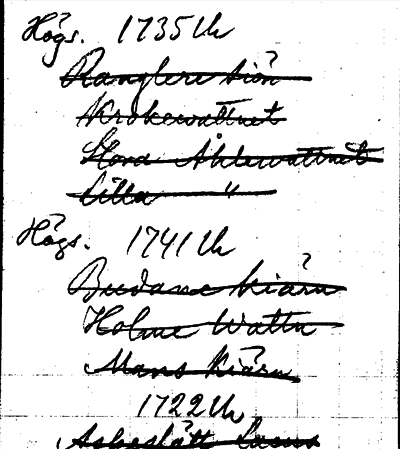 Högs. 1735 Uh
Ranglere siön ?
Krokewattnet
Stora Åhlewattnet
Lilla "
Högs. 1741 Uh
Budane kiärn ?
Holme Wattn
Mans kiärn
1722 Uh